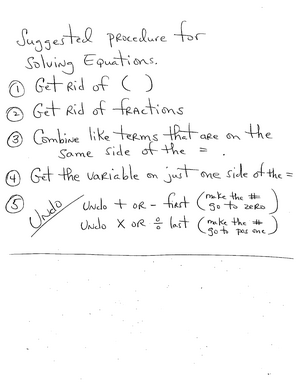 Suggested procedure for
Solving Equations.
① Get Rid of ( )
② Get Rid of fractions
③ Combine like terms that are on the
same side of the = .
④ Get the variable on just one side of the =
⑤ Undo Undo + OR - first (make the # go to zero)
Undo X OR ÷ last (make the # go to pos one)